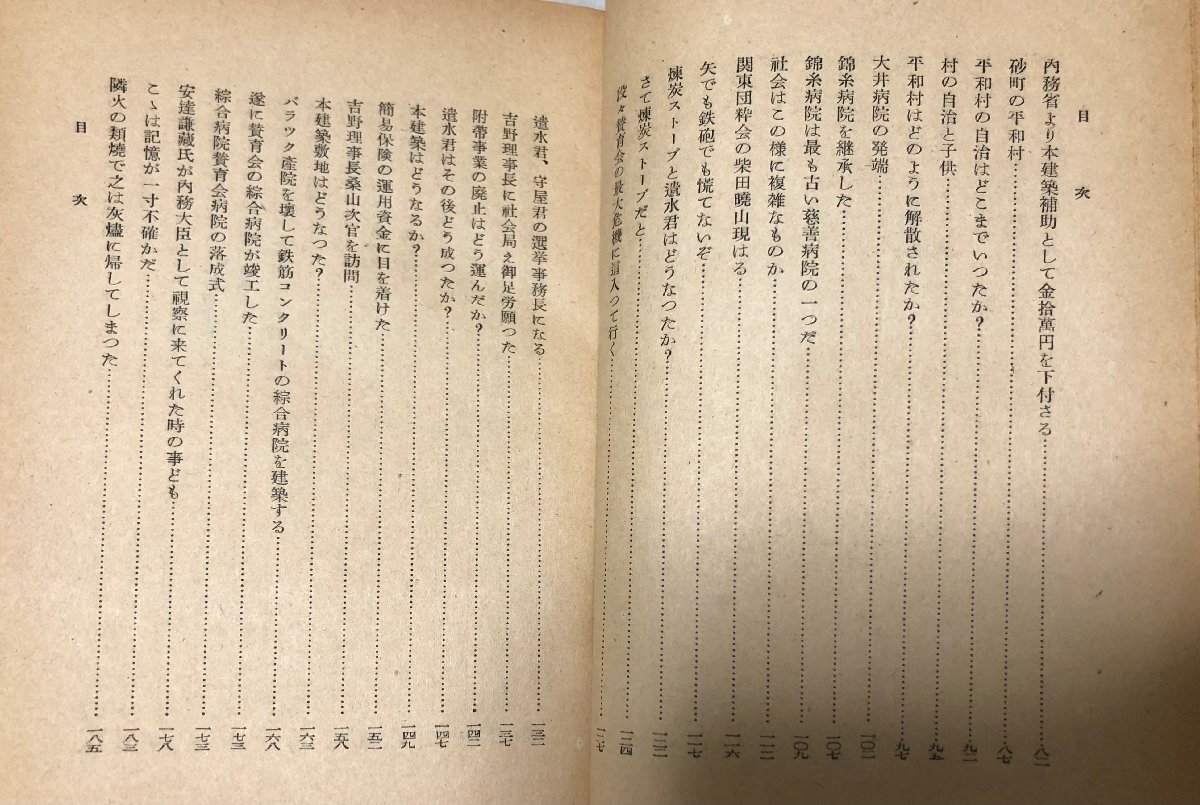 目次
内務省より本建築補助として金拾萬円を下付さる……八二
砂町の平和村……八七
平和村の自治はどこまでいつたか？……九二
村の自治と子供……九五
平和村はどのように解散されたか？……九七
大井病院の発端……一〇三
錦糸病院を継承した……一〇三
錦糸病院は最も古い慈善病院の一つだ……一〇九
社会はこの様に複雑なものか……一一二
関東団粋会の柴田曉山現はる……一一六
矢でも鉄砲でも慌てないぞ……一一七
煉炭ストーブと遺水君はどうなつたか？……一二二
さて煉炭ストーブだと……一二四
段々賛育会の最大危機に這入つて行く……一二七
遺水君、守屋君の選挙事務長になる……一三二
吉野理事長に社会局え御足労願つた……一三七
附帯事業の廃止はどう運んだか？……一四二
遺水君はその後どう成つたか？……一四七
本建築はどうなるか？……一四九
簡易保険の運用資金に目を着けた……一五二
吉野理事長桑山次官を訪問……一五八
本建築敷地はどうなつた？……一六三
バラツク産院を壊して鉄筋コンクリートの綜合病院を建築する……一六八
遂に賛育会の綜合病院が竣工した……一七三
綜合病院賛育会病院の落成式……一七三
安達謙藏氏が内務大臣として視察に来てくれた時の事ども……一七八
こゝは記憶が一寸不確かだ……一八三
隣火の類焼で之は灰燼に帰してしまつた……一八五
目次